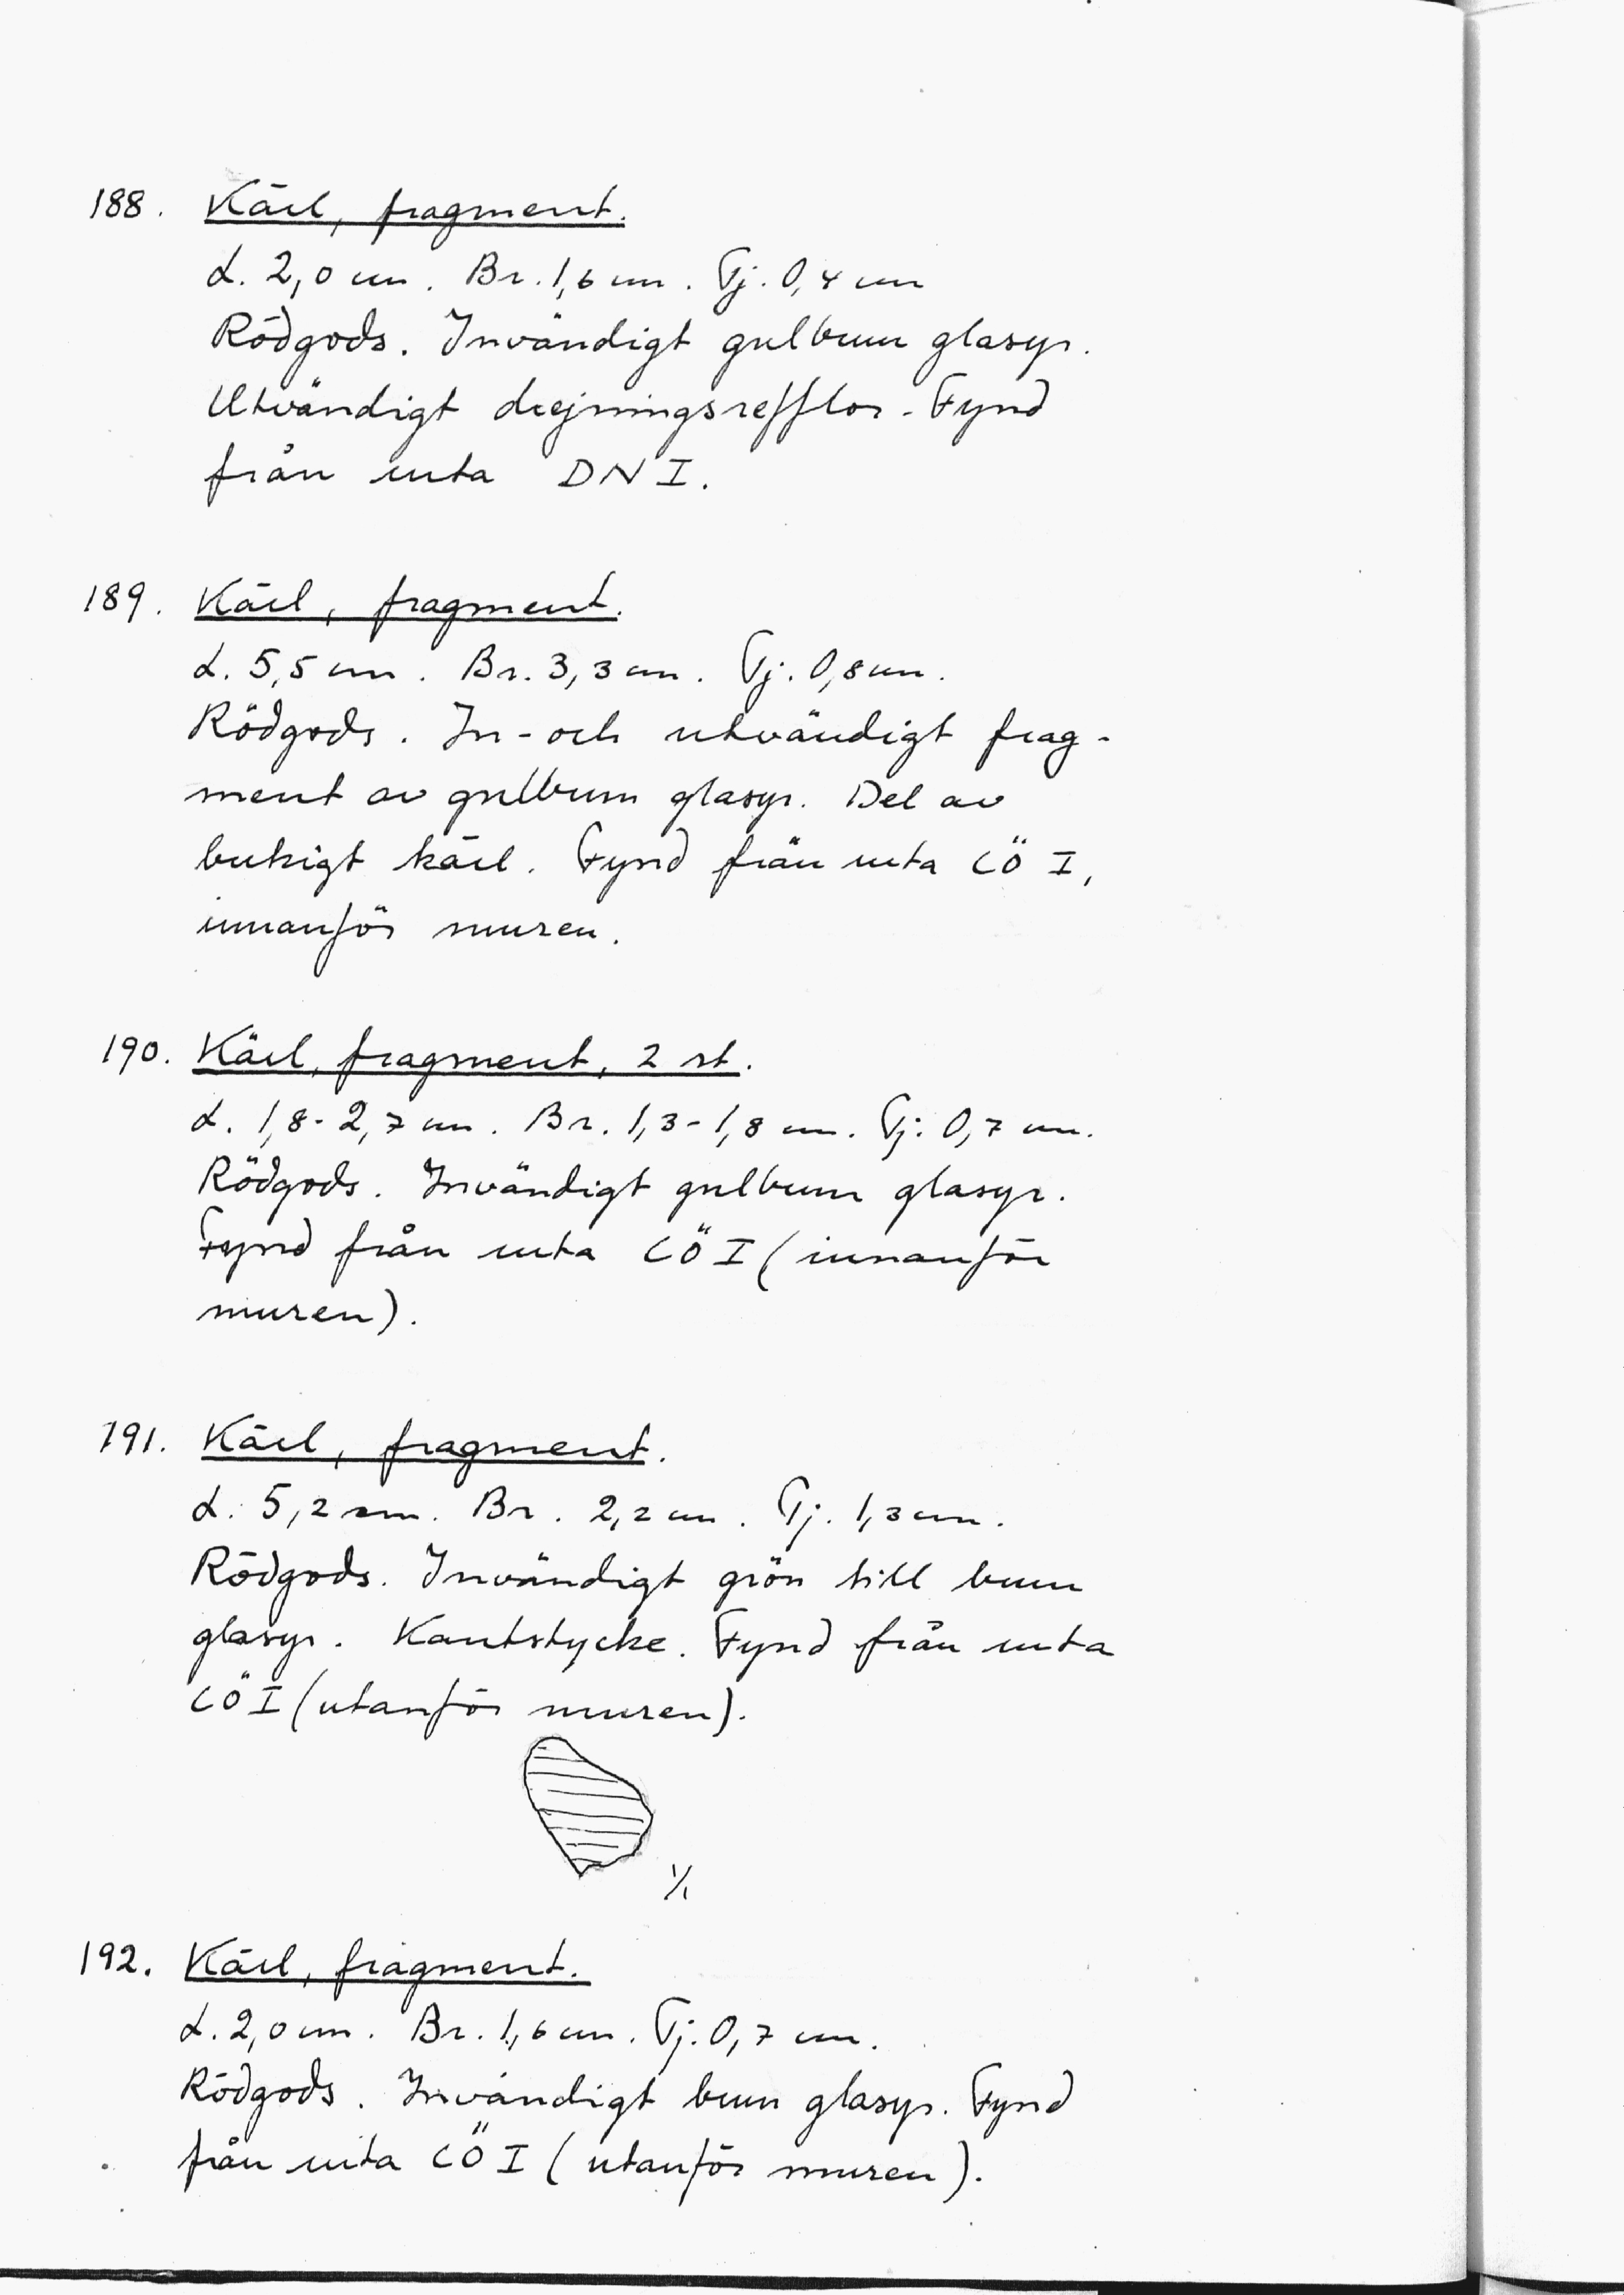 188. Kärl, fragment.
L. 2,0 cm. Br. 1,6 cm. Tj. 0,4 cm
Rödgods. Invändigt gulbrun glasyr.
Utvändigt drejningsrefflor. Fynd
från ruta DN I.
189. Kärl, fragment.
L. 5,5 cm. Br. 3,3 cm. Tj. 0,8 cm.
Rödgods. In- och utvändigt frag-
ment av gulbrun glasyr. Del av
bukigt kärl. Fynd från ruta CÖ I,
innanför muren.
190. Kärl, fragment, 2 st.
L. 1,8-2,7 cm. Br. 1,3-1,8 cm. Tj. 0,7 cm.
Rödgods. Invändigt gulbrun glasyr.
Fynd från ruta CÖ I (innanför
muren).
191. Kärl, fragment.
L. 5,2 cm. Br. 2,2 cm. Tj. 1,3 cm.
Rödgods. Invändigt grön till brun
glasyr. Kantstycke. Fynd från ruta
CÖ I (utanför muren).
1/1
192. Kärl, fragment.
L. 2,0 cm. Br. 1,6 cm. Tj. 0,7 cm.
Rödgods. Invändigt brun glasyr. Fynd
från ruta CÖ I (utanför muren).